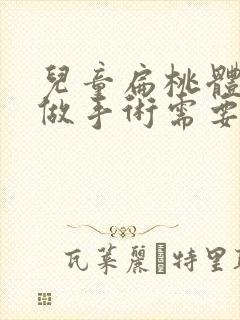 兒童扁桃體
做手術需要
瓦萊麗·特里